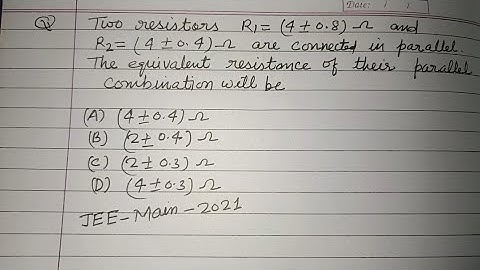 Date: / /
Q Two resistors R1 = (4 ± 0.8) Ω and
R2 = (4 ± 0.4) Ω are connected in parallel.
The equivalent resistance of their parallel
combination will be
(A) (4 ± 0.4) Ω
(B) (2 ± 0.4) Ω
(C) (2 ± 0.3) Ω
(D) (4 ± 0.3) Ω
JEE-Main-2021